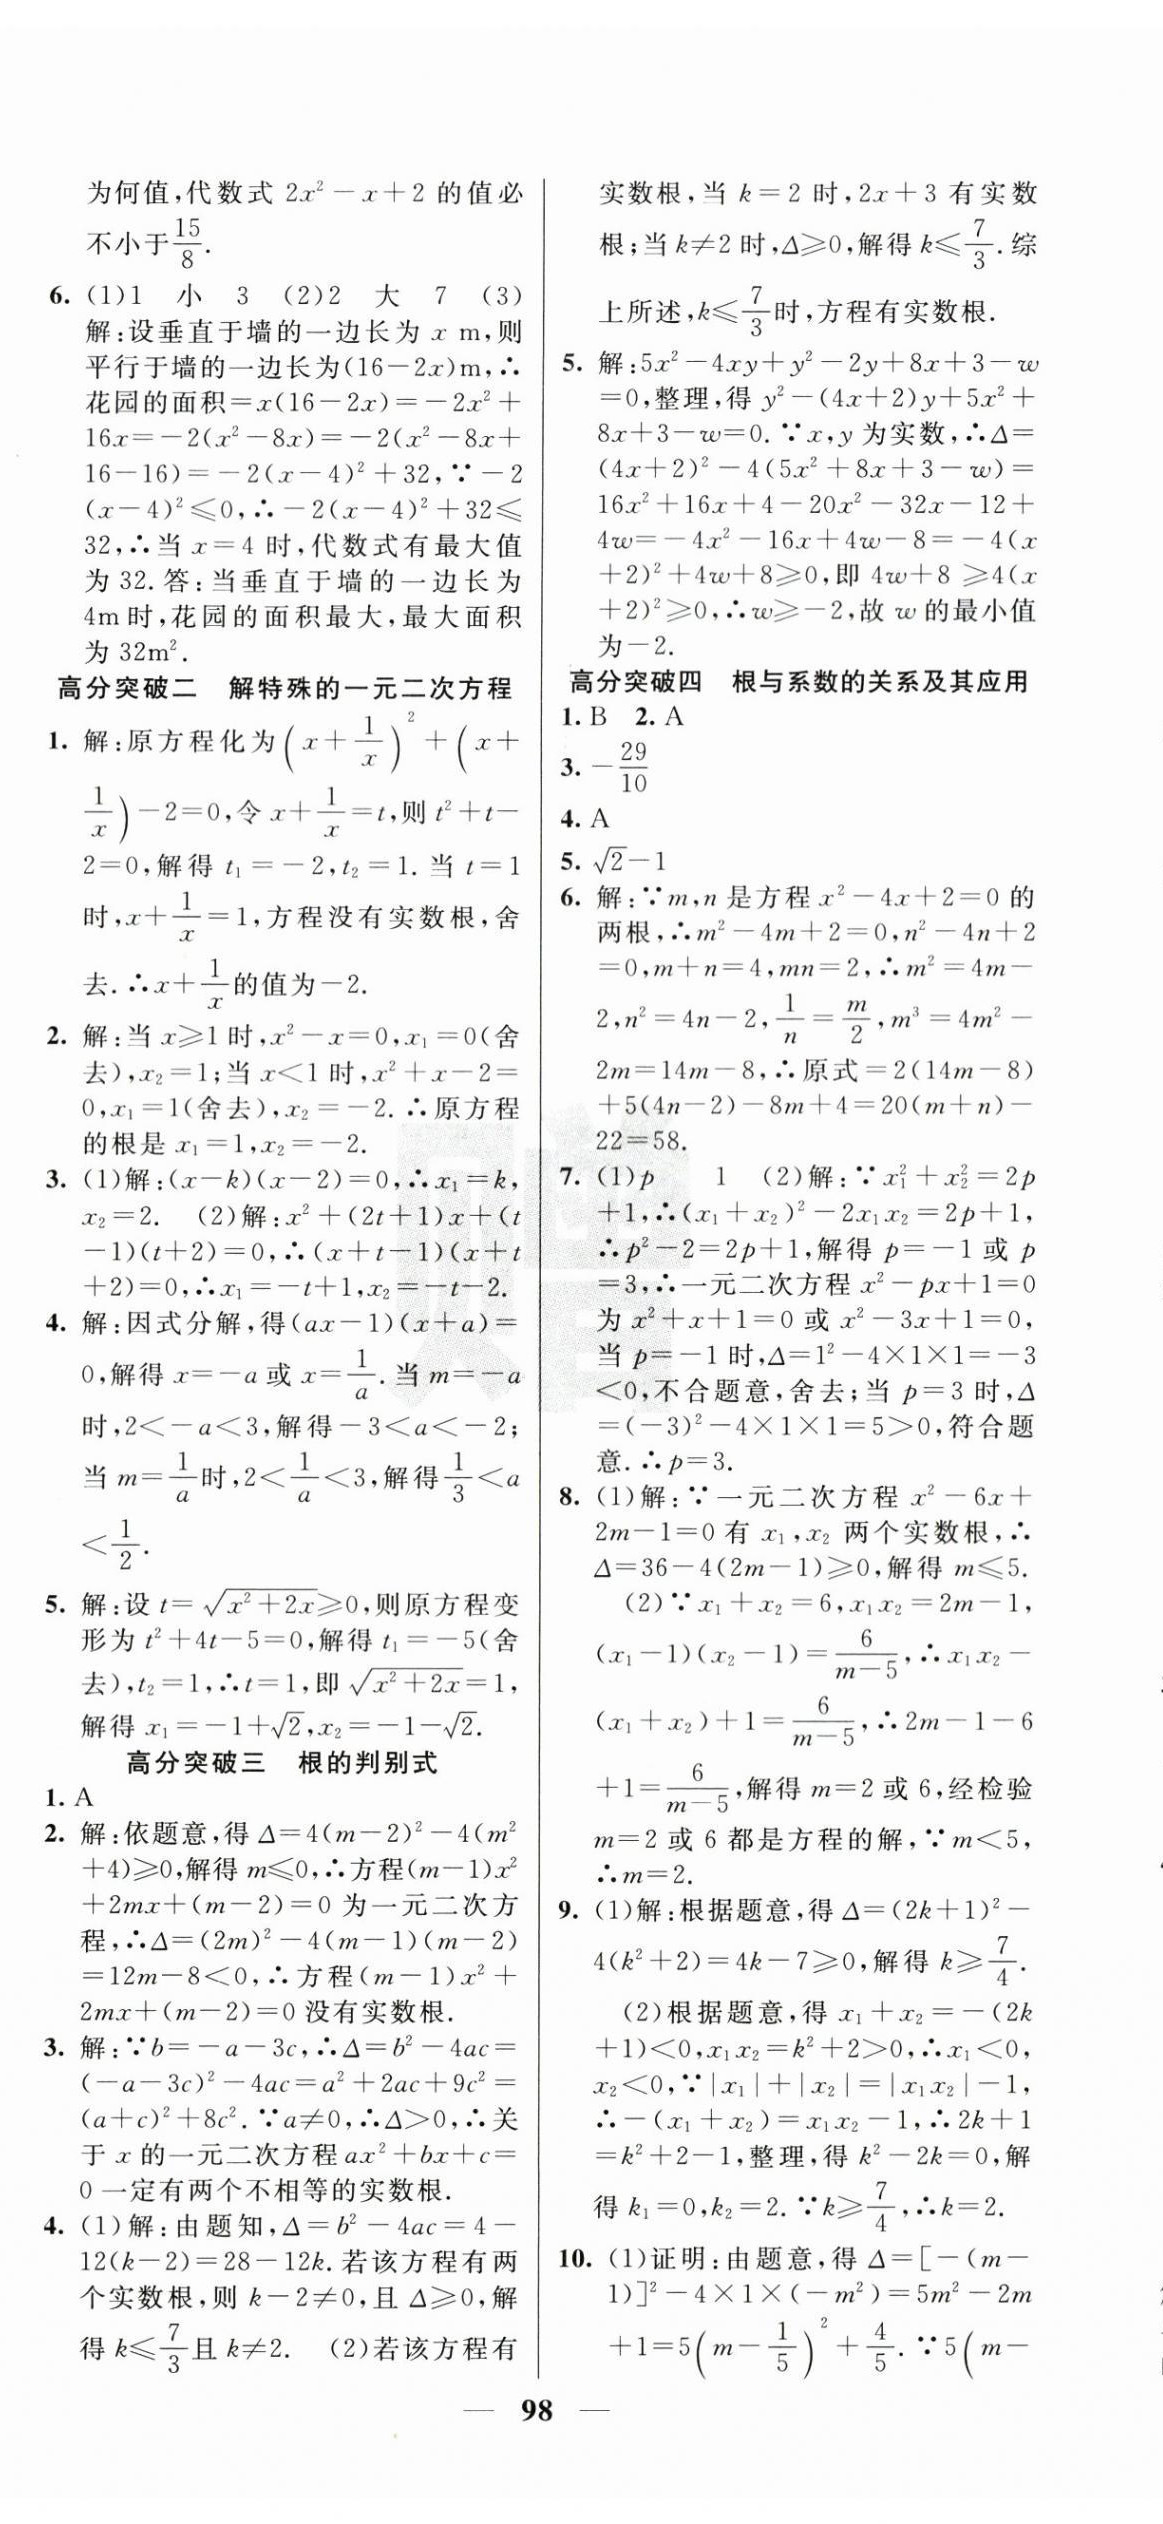 为何值,代数式 2x²－x＋2 的值必
不小于15/8.
6. (1)1 小 3 (2)2 大 7 (3)
解:设垂直于墙的一边长为 x m,则
平行于墙的一边长为(16－2x)m,∴
花园的面积＝x(16－2x)＝－2x²＋
16x＝－2(x²－8x)＝－2(x²－8x＋
16－16)＝－2(x－4)²＋32,∵－2
(x－4)²≤0,∴－2(x－4)²＋32≤
32,∴当 x＝4 时,代数式有最大值
为 32. 答:当垂直于墙的一边长为
4m 时,花园的面积最大,最大面积
为 32m².
高分突破二 解特殊的一元二次方程
1. 解:原方程化为(x＋1/x)²＋(x＋
1/x)－2＝0,令 x＋1/x＝t,则 t²＋t－
2＝0,解得 t₁＝－2,t₂＝1. 当 t＝1
时,x＋1/x＝1,方程没有实数根,舍
去. ∴x＋1/x的值为－2.
2. 解:当 x≥1 时,x²－x＝0,x₁＝0(舍
去),x₂＝1;当 x＜1 时,x²＋x－2＝
0,x₁＝1(舍去),x₂＝－2. ∴原方程
的根是 x₁＝1,x₂＝－2.
3. (1)解:(x－k)(x－2)＝0,∴x₁＝k,
x₂＝2. (2)解:x²＋(2t＋1)x＋(t
－1)(t＋2)＝0,∴(x＋t－1)(x＋t
＋2)＝0,∴x₁＝－t＋1,x₂＝－t－2.
4. 解:因式分解,得(ax－1)(x＋a)＝
0,解得 x＝－a 或 x＝1/a. 当 m＝－a
时,2＜－a＜3,解得－3＜a＜－2;
当 m＝1/a时,2＜1/a＜3,解得1/3＜a
＜1/2.
5. 解:设 t＝√(x²＋2x)≥0,则原方程变
形为 t²＋4t－5＝0,解得 t₁＝－5(舍
去),t₂＝1,∴t＝1,即√(x²＋2x)＝1,
解得 x₁＝－1＋√2,x₂＝－1－√2.
高分突破三 根的判别式
1. A
2. 解:依题意,得 Δ＝4(m－2)²－4(m²
＋4)≥0,解得 m≤0,∴方程(m－1)x²
＋2mx＋(m－2)＝0 为一元二次方
程,∴Δ＝(2m)²－4(m－1)(m－2)
＝12m－8＜0,∴方程(m－1)x²＋
2mx＋(m－2)＝0 没有实数根.
3. 解:∵b＝－a－3c,∴Δ＝b²－4ac＝
(－a－3c)²－4ac＝a²＋2ac＋9c²＝
(a＋c)²＋8c². ∵a≠0,∴Δ＞0,∴关
于 x 的一元二次方程 ax²＋bx＋c＝
0 一定有两个不相等的实数根.
4. (1)解:由题知,Δ＝b²－4ac＝4－
12(k－2)＝28－12k. 若该方程有两
个实数根,则 k－2≠0,且 Δ≥0,解
得 k≤7/3且 k≠2. (2)若该方程有
实数根,当 k＝2 时,2x＋3 有实数
根;当 k≠2 时,Δ≥0,解得 k≤7/3. 综
上所述,k≤7/3时,方程有实数根.
5. 解:5x²－4xy＋y²－2y＋8x＋3－w
＝0,整理,得 y²－(4x＋2)y＋5x²＋
8x＋3－w＝0. ∵x,y 为实数,∴Δ＝
(4x＋2)²－4(5x²＋8x＋3－w)＝
16x²＋16x＋4－20x²－32x－12＋
4w＝－4x²－16x＋4w－8＝－4(x
＋2)²＋4w＋8≥0,即 4w＋8 ≥4(x
＋2)²≥0,∴w≥－2,故 w 的最小值
为－2.
高分突破四 根与系数的关系及其应用
1. B 2. A
3. －29/10
4. A
5. √2－1
6. 解:∵m,n 是方程 x²－4x＋2＝0 的
两根,∴m²－4m＋2＝0,n²－4n＋2
＝0,m＋n＝4,mn＝2,∴m²＝4m－
2,n²＝4n－2,1/n＝m/2,m³＝4m²－
2m＝14m－8,∴原式＝2(14m－8)
＋5(4n－2)－8m＋4＝20(m＋n)－
22＝58.
7. (1)p 1 (2)解:∵x₁²＋x₂²＝2p
＋1,∴(x₁＋x₂)²－2x₁x₂＝2p＋1,
∴p²－2＝2p＋1,解得 p＝－1 或 p
＝3,∴一元二次方程 x²－px＋1＝0
为 x²＋x＋1＝0 或 x²－3x＋1＝0,
当 p＝－1 时,Δ＝1²－4×1×1＝－3
＜0,不合题意,舍去;当 p＝3 时,Δ
＝(－3)²－4×1×1＝5＞0,符合题
意. ∴p＝3.
8. (1)解:∵一元二次方程 x²－6x＋
2m－1＝0 有 x₁,x₂ 两个实数根,∴
Δ＝36－4(2m－1)≥0,解得 m≤5.
(2)∵x₁＋x₂＝6,x₁x₂＝2m－1,
(x₁－1)(x₂－1)＝6/(m－5),∴x₁x₂－
(x₁＋x₂)＋1＝6/(m－5),∴2m－1－6
＋1＝6/(m－5),解得 m＝2 或 6,经检验
m＝2 或 6 都是方程的解,∵m＜5,
∴m＝2.
9. (1)解:根据题意,得 Δ＝(2k＋1)²－
4(k²＋2)＝4k－7≥0,解得 k≥7/4.
(2)根据题意,得 x₁＋x₂＝－(2k
＋1)＜0,x₁x₂＝k²＋2＞0,∴x₁＜0,
x₂＜0,∵|x₁|＋|x₂|＝|x₁x₂|－1,
∴－(x₁＋x₂)＝x₁x₂－1,∴2k＋1
＝k²＋2－1,整理,得 k²－2k＝0,解
得 k₁＝0,k₂＝2. ∵k≥7/4,∴k＝2.
10. (1)证明:由题意,得 Δ＝[－(m－
1)]²－4×1×(－m²)＝5m²－2m
＋1＝5(m－1/5)²＋4/5. ∵5(m－
— 98 —